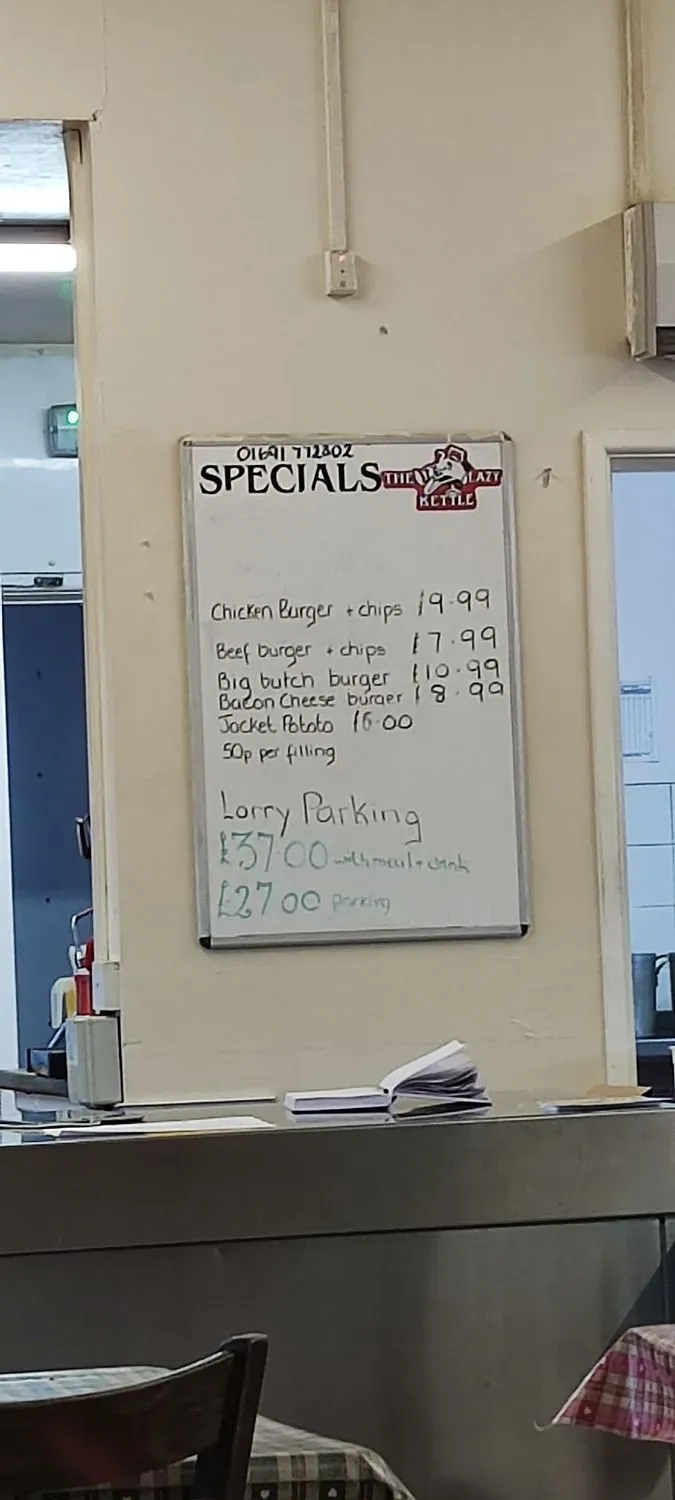 01691 772802
SPECIALS THE LAZY KETTLE
Chicken Burger + chips £9.99
Beef burger + chips £7.99
Big butch burger £10.99
Bacon Cheese burger £8.99
Jacket Potato £6.00
50p per filling
Lorry Parking
£37.00 with meal + drink
£27.00 parking